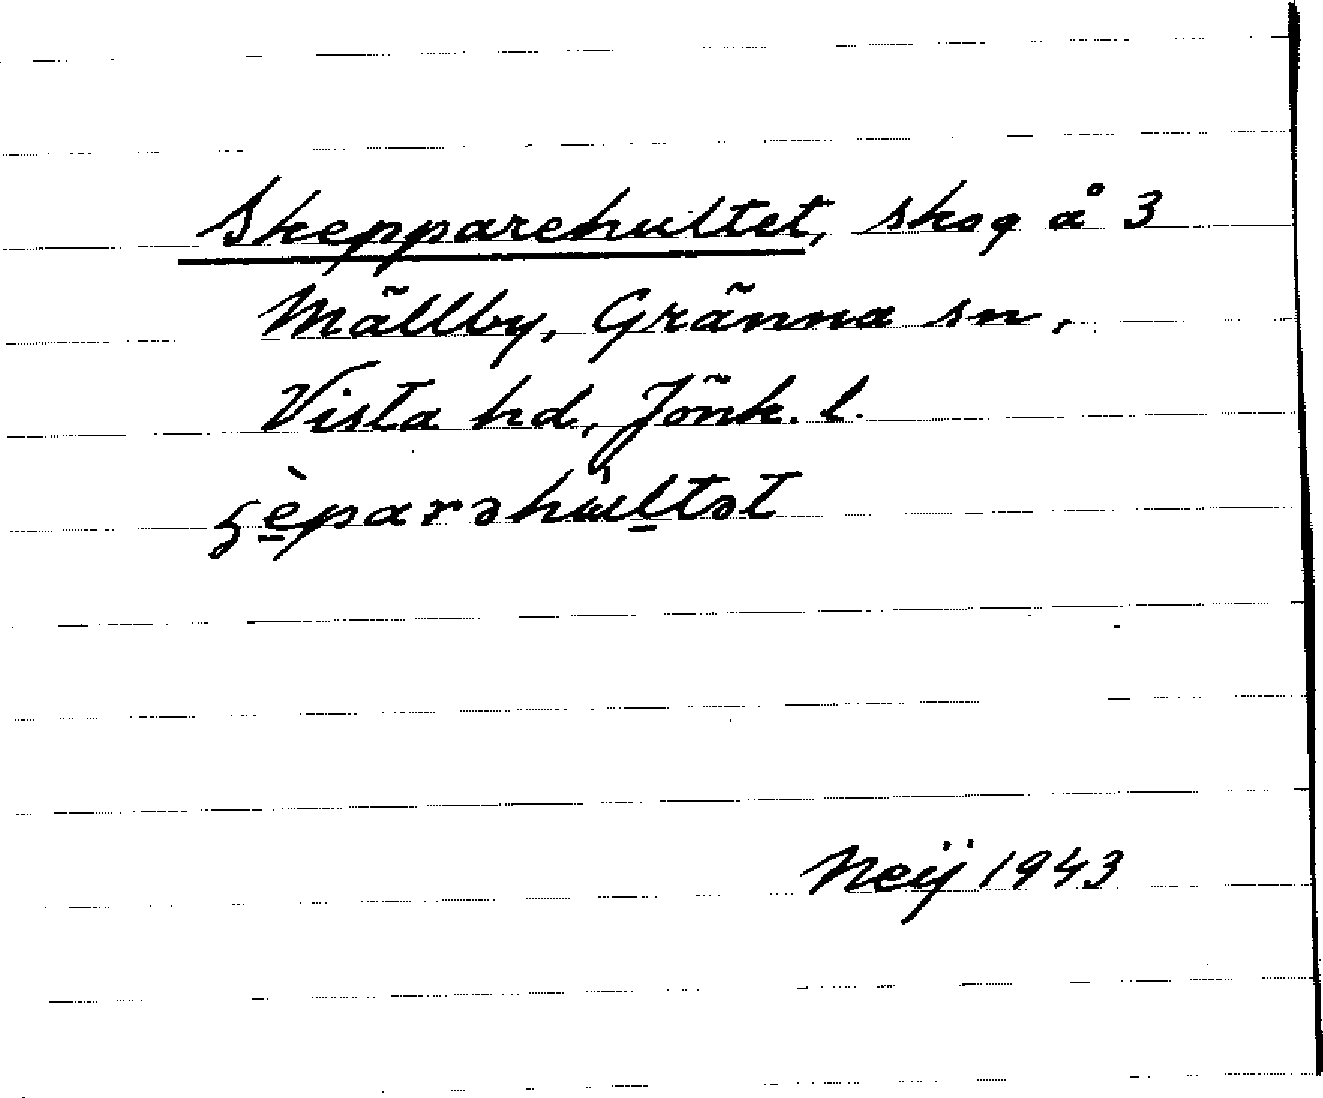 Skepparehultet, skog å 3
Mällby, Gränna sn,
Vista hd, Jönk. l.
Neij 1943